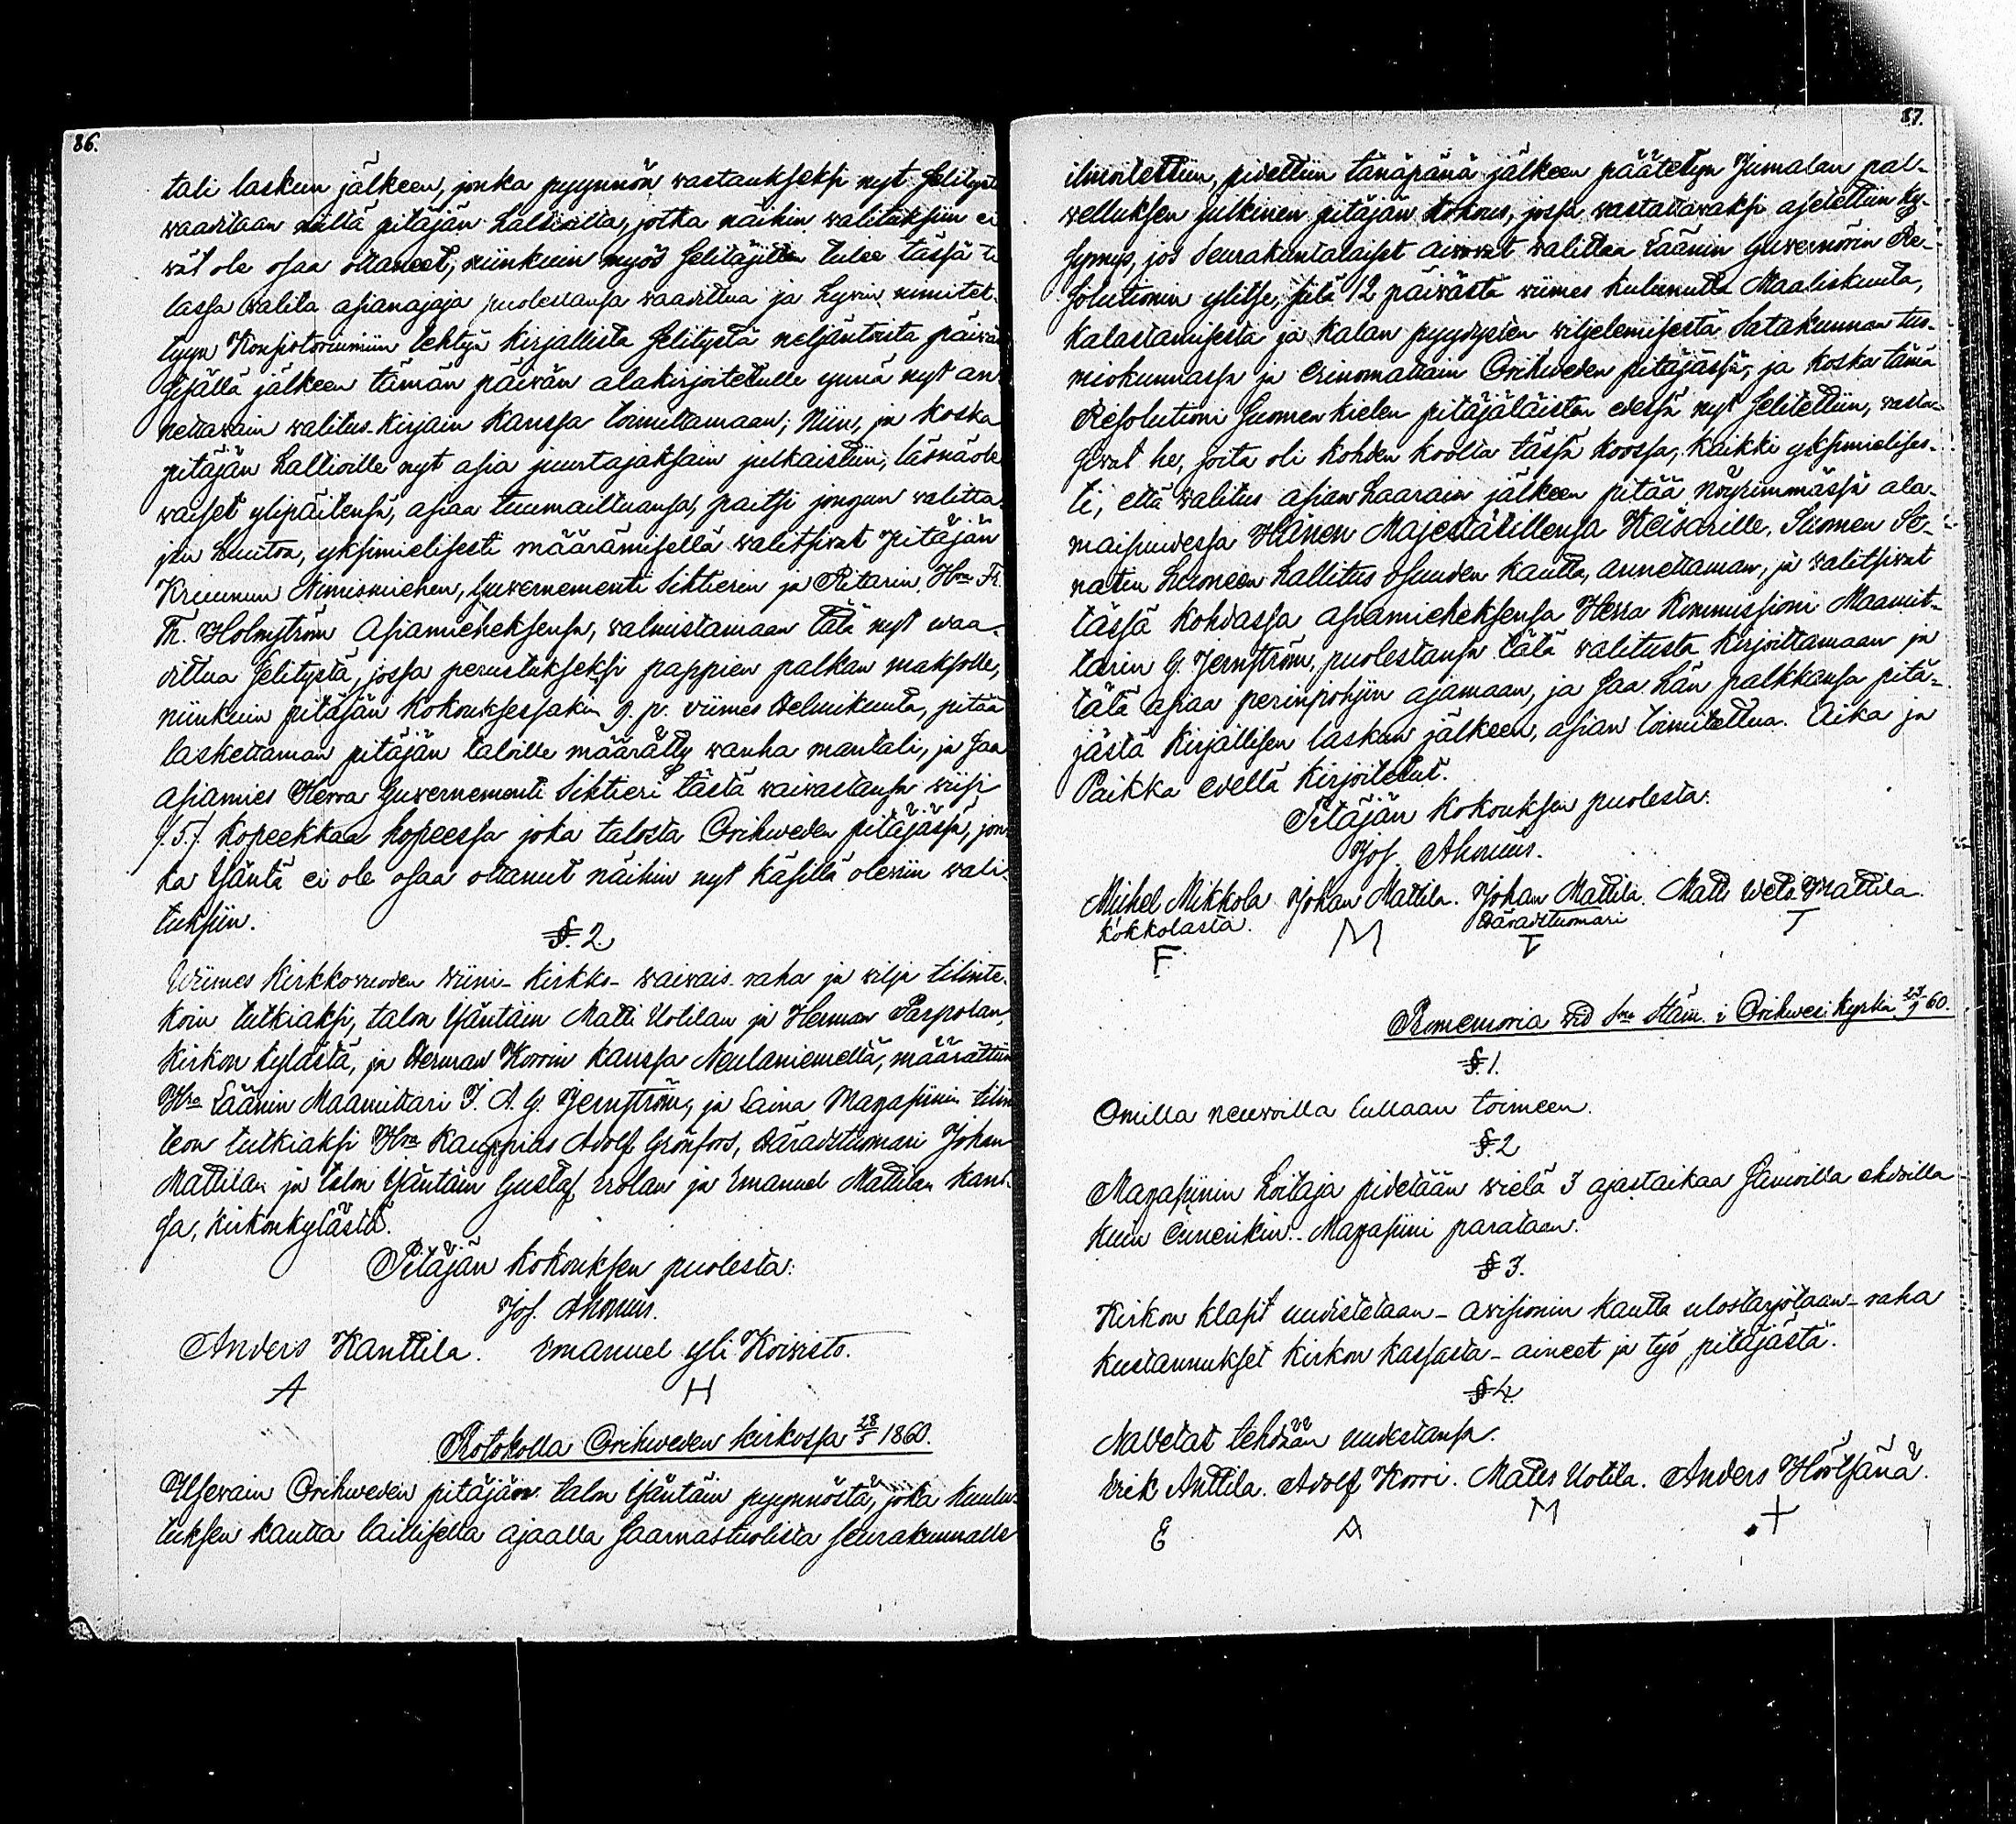 86.
tali laskun jälkeen, jonka pyynnön wastaukseksi nyt selitystä
waaditaan niiltä pitäjän haltioilta, jotka näihin walituksiin ei
wät ole osaa ottaneet, niinkuin myös selitäjitten tulee tässä ti
lassa walita asianajaja puolestansa waadittua ja hywin nimitet-
tyyn Konsistoriumiin tehtyä kirjallista selitystä neljäntoista päiwän
sisällä jälkeen tämän päiwän alakirjoitetulle ynnä nyt an-
nettawain walitus-kirjain kanssa toimittamaan; Niin, ja koska
pitäjän haltioille nyt asia juurtajaksain julkaistiin, läsnäole
waiset ylipäätensä, asiaa tuumailtuansa, paitsi jongun walitta-
jan huutoa, yksimielisesti määrämisellä walitsiwat Pitäjän
Kruunun Nimismiehen, Guwernementi Sihtierin ja Ritarin Hra Fr.
Th. Holmström Asiamieheksensä, walmistamaan tätä nyt waa-
dittua selitystä, jossa perustukseksi pappien palkan maksolle,
niinkuin pitäjän kokouksessakin 9. p. viimes Helmikuuta, pitää
laskettaman pitäjän taloille määrätty wanha mantali, ja saa
asiamies Herra Guwernementi Sihtieri tästä waiwastansa wiisi
/:5:/ kopeekkaa hopeessa joka talosta Orihweden pitäjässä, jon-
ka Isäntä ei ole osaa ottanut näihin nyt käsillä olewiin wali-
tuksiin.
§. 2.
Wiimes kirkkowuoden wiini- kirkko- waiwais- raha ja wilja tilinte-
koin tutkiaksi, talon Isäntäin Matti Uotilan ja Herman Parpolan,
kirkon kylästä, ja Herman Korrin kanssa Neulaniemeltä, määrättiin
Hra Läänin Maamittari J. A. G. Jernström, ja Laina Magasiinin tilin
teon tutkiaksi Hra Kauppias Adolf Grönfors, Häradstuomari Johan
Mattilan ja talon Isäntäin Gustaf Erolan ja Emanuel Mattilan kans-
sa, kirkonkylästä.
Pitäjän kokouksen puolesta:
Jos. Ahonius.
Anders Kanttila. Emanuel yli Koiwisto.
A H
Protokolla Orihweden kirkossa 28/5 1860.
Usewain Orihweden pitäjän talon Isäntäin pyynnöstä, joka kuulu-
tuksen kautta laillisella ajaalla saarnastuolista seurakunnalle
87.
ilmoitettiin, pidettiin tänäpänä jälkeen päätetyn Jumalan pal-
weluksen julkinen pitäjän kokous, jossa, wastattawaksi asetettiin ky-
symys, jos Seurakuntalaiset aiwowat walittaa Läänin Guwernörin Re-
solutionin ylitse, siitä 12 päiwästä wiimes kulunutta Maaliskuuta,
kalastamisesta ja kalan pyydysten wiljelemisestä Satakunnan tuo-
miokunnassa ja erinomattain Orihweden pitäjässä, ja koska tämä
Resolutioni Suomen kielen pitäjäläisten edessä nyt selitettiin, wasta-
siwat he, joita oli kohden koolla tässä koossa, kaikki yksimielises-
ti, että walitus asian haarain jälkeen pitää nöyrimmässä ala-
maisuudessa Hänen Majestätillensä Keisarille, Suomen Se-
natin huoneen hallitus osuuden kautta, annettaman, ja walitsiwat
tässä kohdassa asiamieheksensä Herra Kommissioni Maamit-
tarin G. Jernström, puolestansa tätä walitusta kirjoittamaan ja
tätä asiaa perinpohjin ajamaan, ja saa hän palkkansa pitä-
jästä kirjallisen laskun jälkeen, asian toimitettua. Aika ja
Paikka edellä kirjoitetut.
Pitäjän kokouksen puolesta:
Jos. Ahonius.
Mihel Mikkola Johan Mattila. Johan Mattila. Matti Mattila.
Kokkolasta. Häradstuomari
F M T T
Promemoria wid Sne Stäm. i Orihwesi kyrka 23/9 60.
§. 1.
Omilla neuwoilla tullaan toimeen.
§. 2
Magasiinin hoitaja pidetään wielä 3 ajastaikaa samoilla ehdoilla
kuin ennenkin - Magasiini parataan.
§ 3.
Kirkon klasit uudistetaan - awisionin kautta ulostarjotaan - raha
kustannukset kirkon kassasta - aineet ja työ pitäjästä.
§ 4.
Nawetat tehdään uudestansa.
Erik Anttila. Adolf Korri. Matts Uotila. Anders Höölsänä.
E A M +